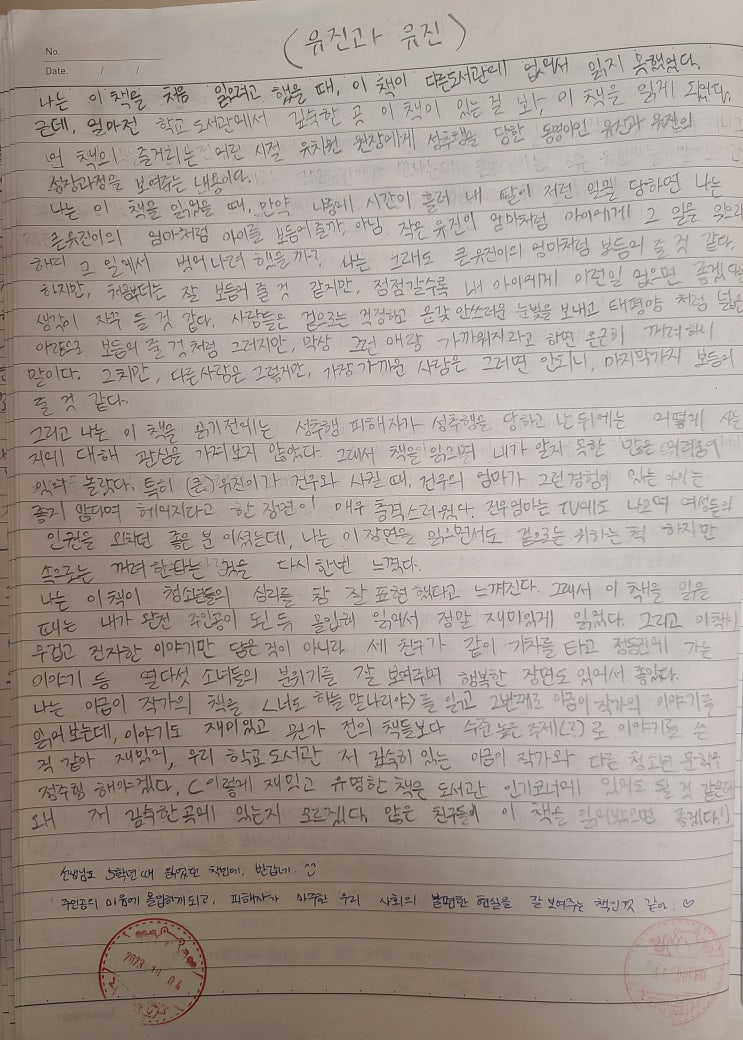 (유진과 유진)
No.
Date. / /
나는 이 책을 처음 읽으려고 했을 때, 이 책이 다른도서관에 없어서 읽지 못했었다.
근데, 얼마전 학교 도서관에서 깊숙한 곳 이 책이 있는걸 보아, 이 책을 읽게 되었다.
이 책의 줄거리는 어린 시절 유치원 원장에게 성추행을 당한 동명이인 유진과 유진의
성장과정을 보여주는 내용이다.
나는 이 책을 읽었을 때, 만약 나중에 시간이 흘러 내 딸이 저런 일을 당하면 나는
큰유진이의 엄마처럼 아이를 보듬어줄까, 아님 작은 유진이 엄마처럼 아이에게 그 일을 잊으라
하며 그 일에서 벗어나려 했을까? 나는 그래도 큰유진이의 엄마처럼 보듬어 줄 것 같다.
하지만, 처음부터는 잘 보듬어 줄 것 같지만, 점점갈수록 내 아이에게 이런일 없으면 좋겠다는
생각이 자꾸 들 것 같다. 사람들은 겉으로는 걱정하고 온갖 안쓰러운 눈빛을 보내고 태평양 처럼 넓은
아량으로 보듬어 줄 것처럼 그러지만, 막상 그런 애랑 가까워지라고 하면 은근히 꺼려하니
말이다. 그치만, 다른사람은 그렇지만, 가장 가까운 사람은 그러면 안되니, 마지막까지 보듬어
줄 것 같다.
그리고 나는 이 책을 읽기전에는 성추행 피해자가 성추행을 당하고 난 뒤에는 어떻게 사는
지에 대해 관심을 가져 보지 않았다. 그래서 책을 읽으며 내가 알지 못한 많은 어려움이
있어 놀랐다. 특히 (큰)유진이가 건우와 사귈 때, 건우의 엄마가 그런경험이 있는 아이는
좋지 않다며 헤어지라고 한 장면이 매우 충격스러웠다. 건우엄마는 TV에도 나오며 여성들의
인권을 외치던 좋은 분 이셨는데, 나는 이 장면을 읽으면서도 겉으로는 위하는 척 하지만
속으로는 꺼려 한다는 것을 다시한번 느꼈다.
나는 이책이 청소년들의 심리를 참 잘 표현했다고 느껴진다. 그래서 이 책을 읽을
때는 내가 완전 주인공이 된 듯 몰입해 읽어서 정말 재미있게 읽었다. 그리고 이책이
무겁고 진지한 이야기만 담은 것이 아니라 세 친구가 같이 기차를 타고 정동진에 가는
이야기 등 열다섯 소녀들의 분위기를 잘 보여주며 행복한 장면도 있어서 좋았다.
나는 이금이 작가의 책을 <너도 하늘말나리야>를 읽고 2번째로 이금이 작가의 이야기를
읽어보는데, 이야기도 재미있고 뭔가 전의 책들보다 수준높은 주제(?)로 이야기를 쓴
것 같아 재밌어, 우리 학교 도서관 저 깊숙히 있는 이금이 작가와 다른 청소년 문학을
정주행 해야겠다. (이렇게 재밌고 유명한 책은 도서관 인기코너에 있어도 될 것 같은데
왜 저 깊숙한곳에 있는지 모르겠다. 많은 친구들이 이 책을 읽어봤으면 좋겠다!)
선생님도 5학년 때 읽었던 책인데, 반갑네.
주인공의 마음에 몰입하게되고, 피해자가 마주한 우리 사회의 불편한 현실을 잘 보여주는 책인것 같아. ♡